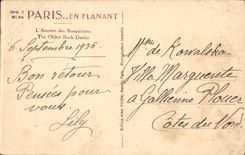 Série 1
PARIS.. EN FLANANT
L'Ancêtre des Bouquinistes
The Oldest Book Dealer
6 Septembre 1936.
Bon retour
Pensées pour
vous.
Lily
de Kowalska
Villa Marguerite
à
Côtes du Nord